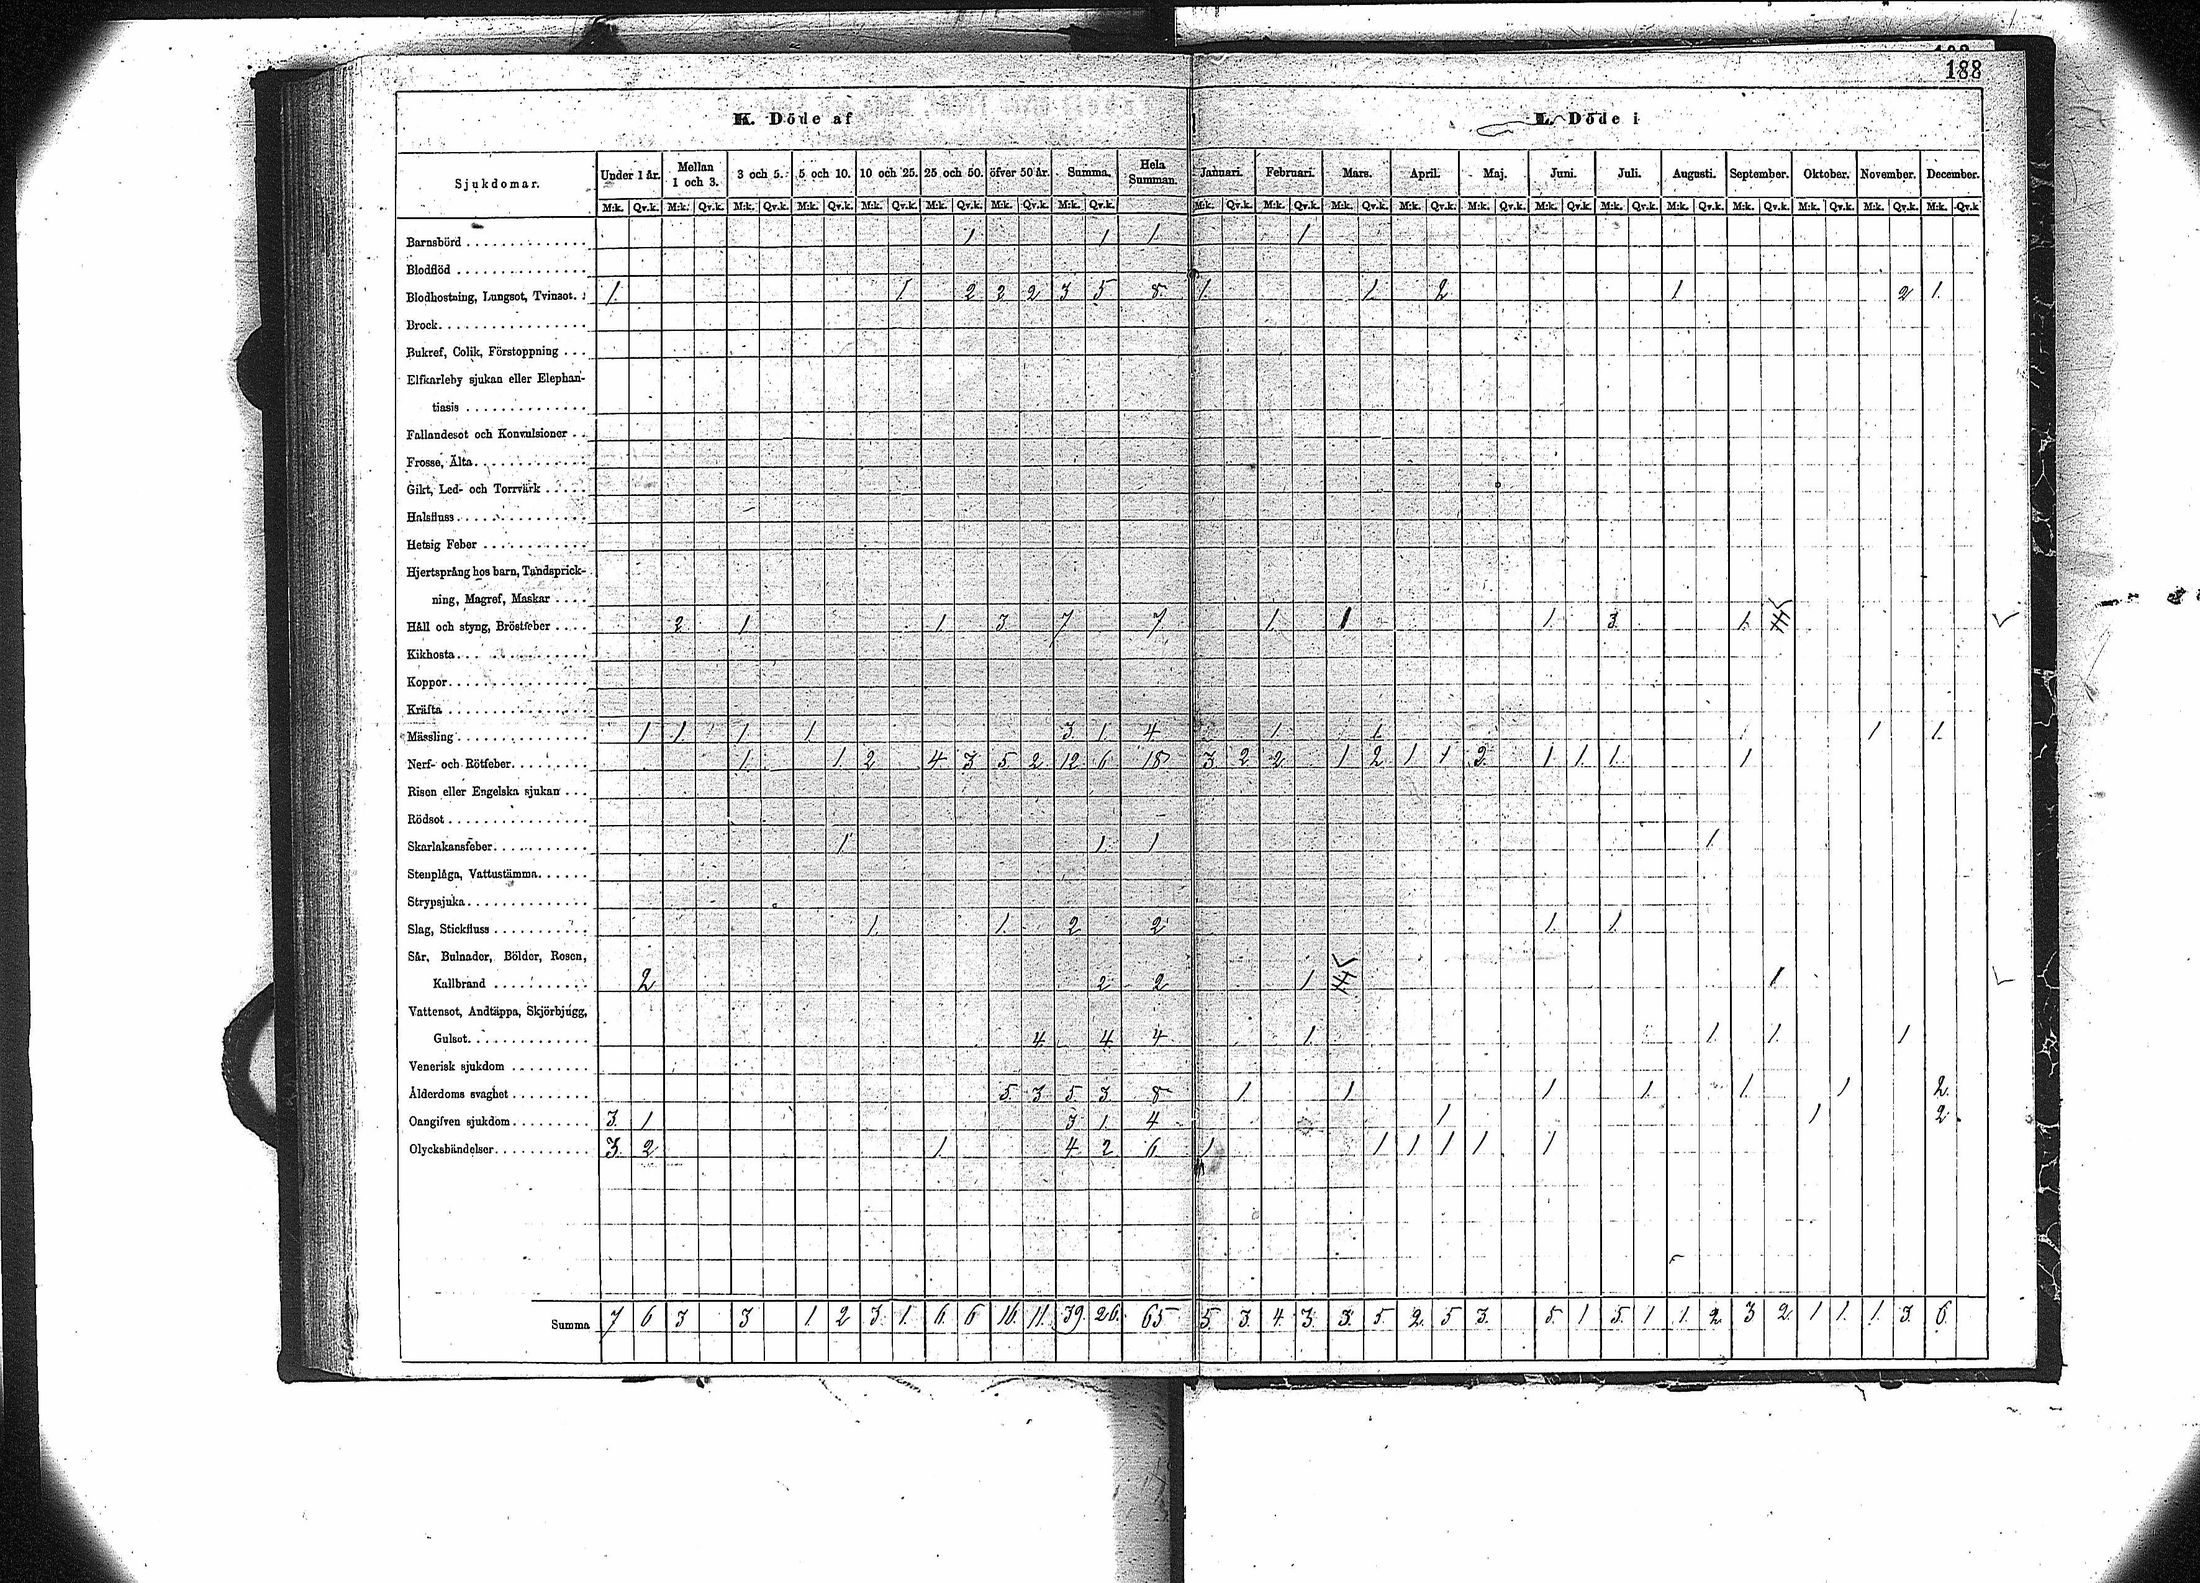 188
K. Döde af L. Döde i
Sjukdomar. Under 1 år. Mellan 1 och 3. 3 och 5. 5 och 10. 10 och 25. 25 och 50. öfver 50 år. Summa. Hela Summan. Januari. Februari. Mars. April. Maj. Juni. Juli. Augusti. September. Oktober. November. December.
M:k. Qv.k. M:k. Qv.k. M:k. Qv.k. M:k. Qv.k. M:k. Qv.k. M:k. Qv.k. M:k. Qv.k. M:k. Qv.k. M:k. Qv.k. M:k. Qv.k. M:k. Qv.k. M:k. Qv.k. M:k. Qv.k. M:k. Qv.k. M:k. Qv.k. M:k. Qv.k. M:k. Qv.k. M:k. Qv.k. M:k. Qv.k. M:k. Qv.k
Barnsbörd 1 1 1 1
Blodflöd
Blodhostning, Lungsot, Tvinsot. 1. 1 2 2 2 3 5 8 1. 1. 2 1 2 1.
Brock
Bukref, Colik, Förstoppning
Elfkarleby sjukan eller Elephan-
tiasis
Fallandesot och Konvulsioner
Frosse, Älta
Gikt, Led- och Torrvärk
Halsfluss
Hetsig Feber
Hjertsprång hos barn, Tandsprick-
ning, Magref, Maskar
Håll och styng, Bröstfeber 2 1. 1. 3. 7 7 1. 1 1. 3. 1.
Kikhosta
Koppor
Kräfta
Mässling 1 1. 1 1. 3 1. 4 1 1 1 1.
Nerf- och Rötfeber 1. 1. 2 4 3 5 2 12 6 18 3 2 2 1 2 1 1 2. 1 1. 1. 1
Risen eller Engelska sjukan
Rödsot
Skarlakansfeber 1 1. 1 1
Stenplåga, Vattustämma
Strypsjuka
Slag, Stickfluss 1. 1. 2 2 1. 1.
Sår, Bulnader, Bölder, Rosen,
Kallbrand 2 2 2 1 1
Vattensot, Andtäppa, Skjörbjugg,
Gulsot 4. 4. 4. 1. 1. 1. 1
Venerisk sjukdom
Ålderdoms svaghet 5. 3. 5. 3. 8 1. 1 1 1. 1. 1 2.
Oangifven sjukdom 3. 1 3 1. 4 1. 1 2.
Olyckshändelser 3. 2 1. 4. 2. 6. 1. 1 1 1 1 1
Summa 7 6 3 3 1. 2 3. 1. 6. 6 16. 11. 39. 26. 65 5. 3. 4. 3. 3. 5. 2. 5 3. 5. 1 5. 1 1. 2. 3 2. 1 1. 1. 3. 6.